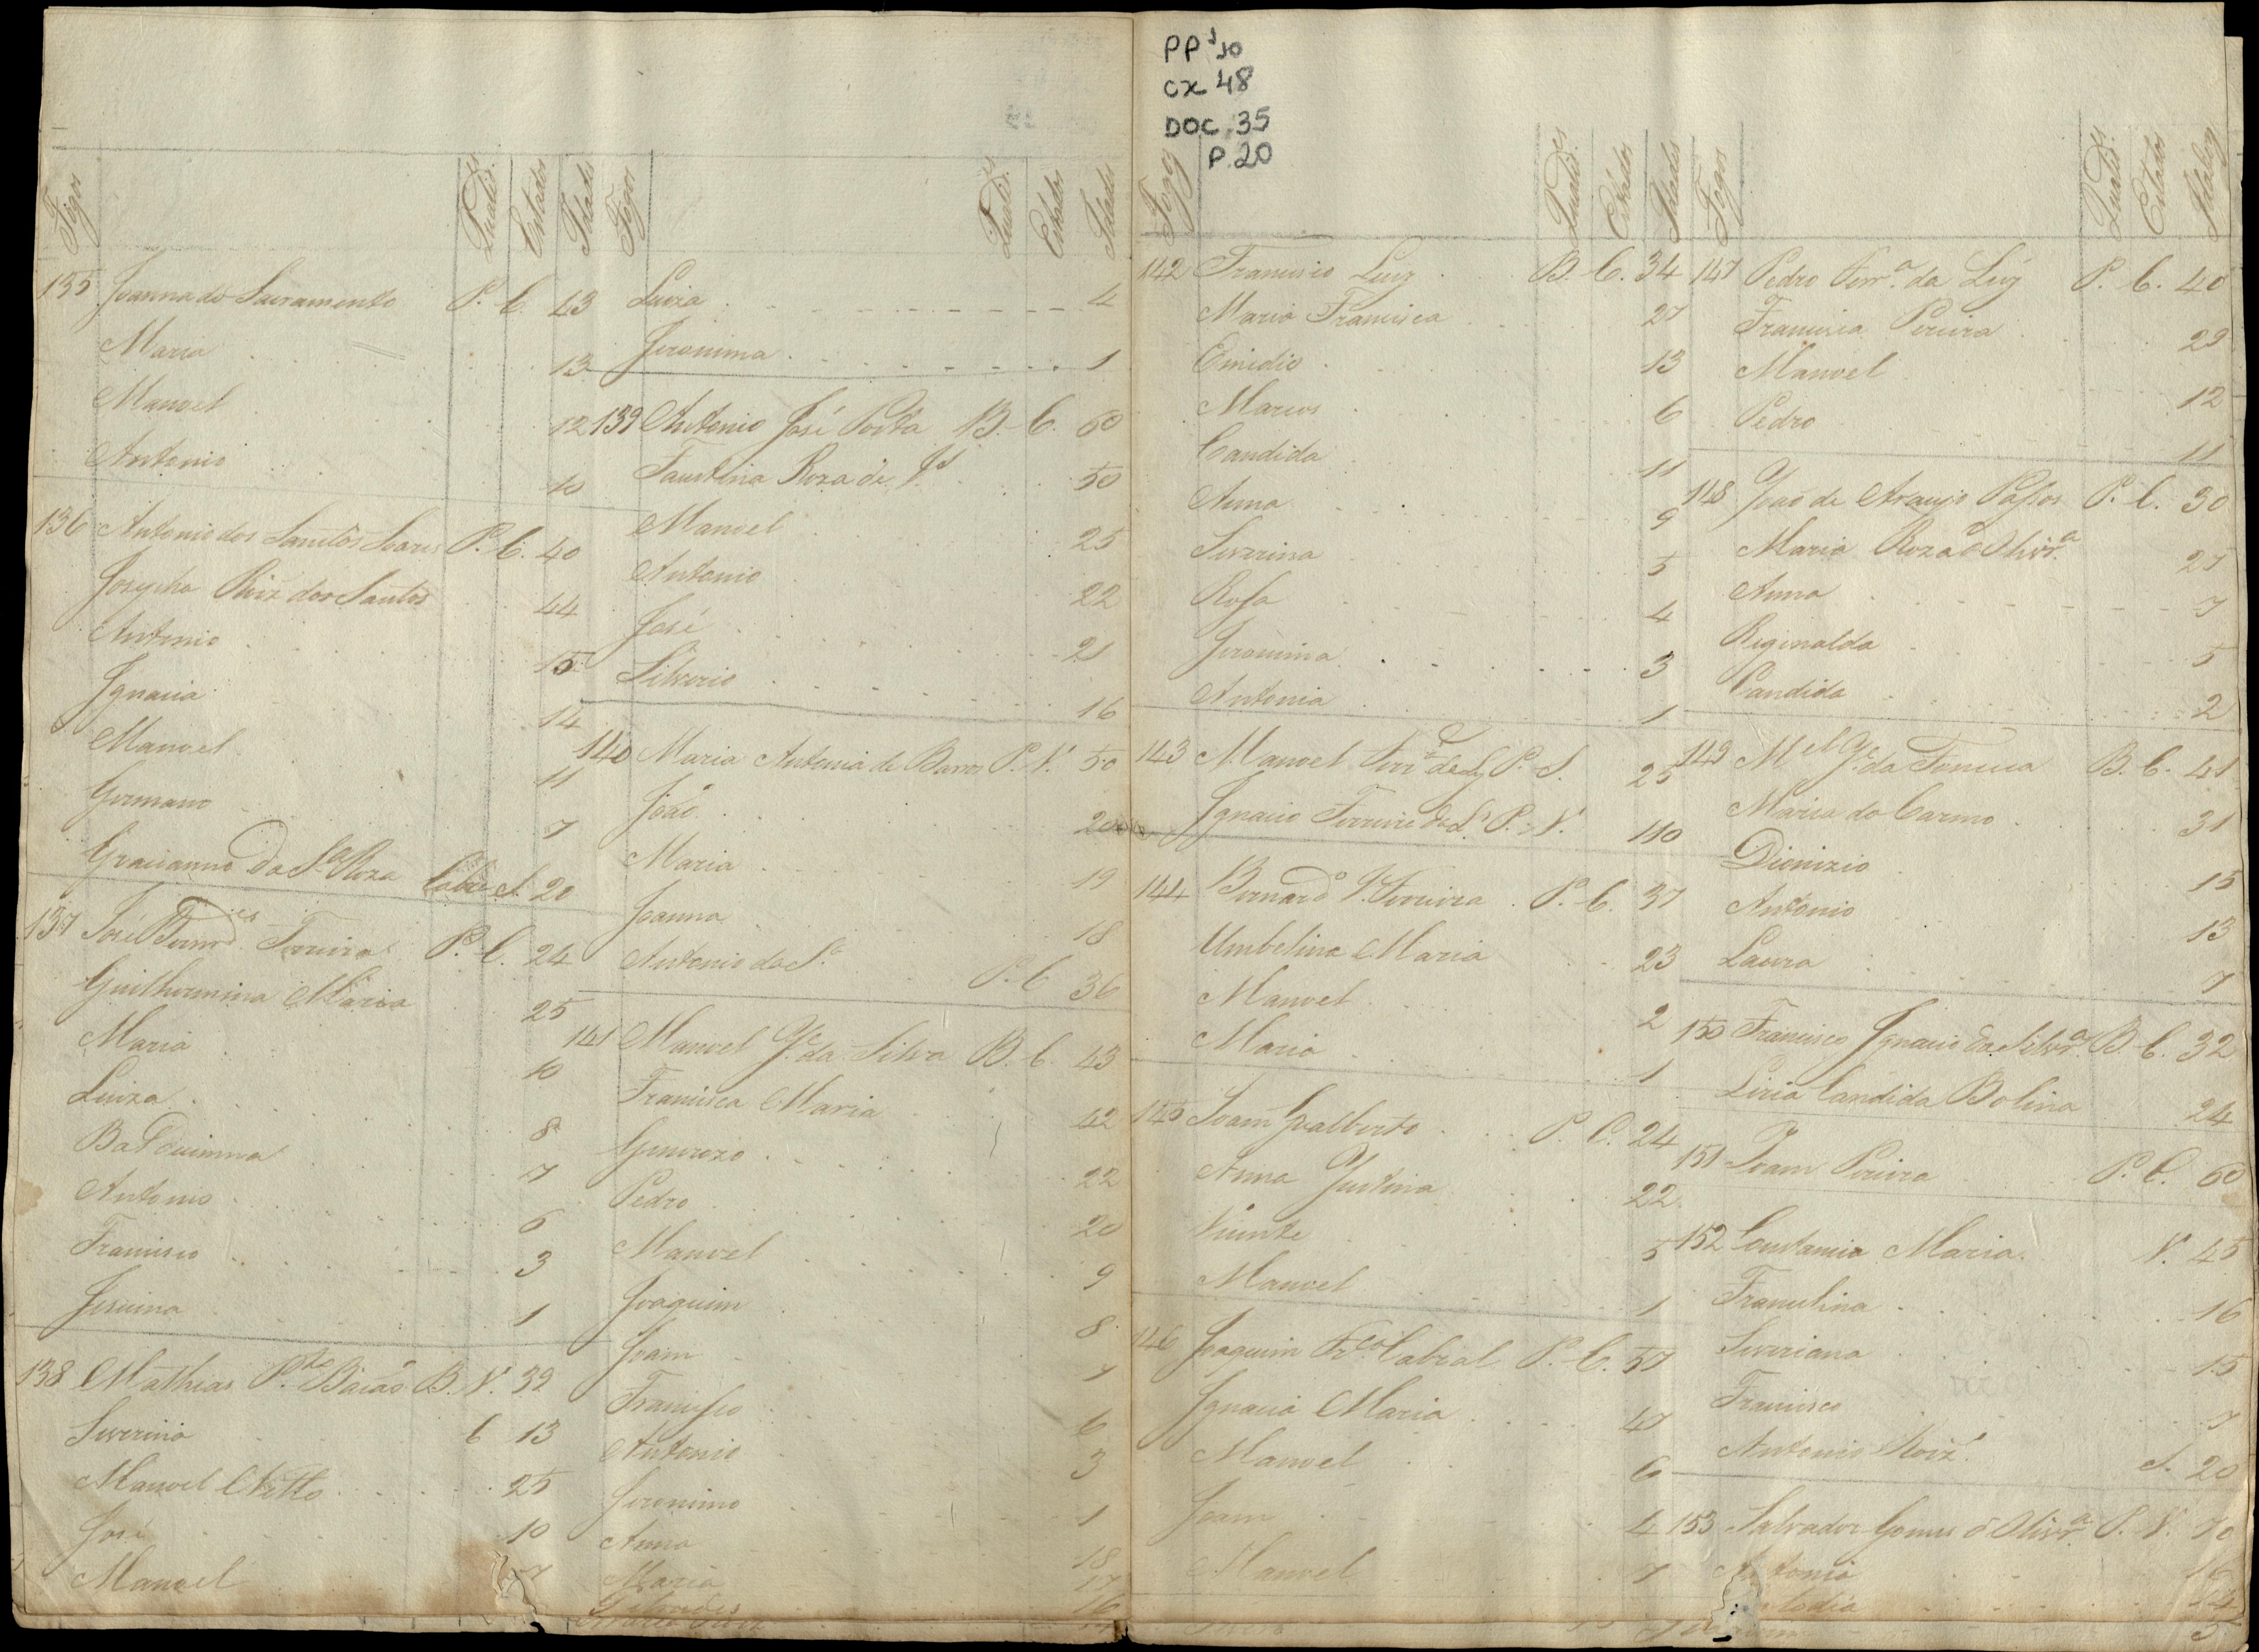 PP 1/10
cx 48
DOC. 35
P. 20
Fogos Qualid.es Estados Idades
135 Joanna do Sacramento P. C. 43
Maria 13
Manoel 12
Antonio 10
136 Antonio dos Santos Soares P. C. 40
Josepha Roiz dos Santos 44
Antonio 15
Ignacia 14
Manoel 11
Germano 7
Gracianno da S.a Roza Cabra S. 20
137 José Fernd.es Ferreira P. C. 24
Guilhermina Maria 25
Maria 10
Luiza 8
Balduinna 7
Antonio 6
Francisco 3
Jesuina 1
138 Mathias P.to Baião B. V. 39
Severina C 13
Manoel Netto 25
José 10
Manoel 7
Fogos Qualid.es Estados Idades
Luzia 4
Jeronima 1
139 Antonio José Porta B. C. 60
Faustina Roza de J.s 50
Manoel 25
Antonio 22
José 21
Silverio 16
140 Maria Antonia de Barros P. V. 50
João 20
Maria 19
Joanna 18
Antonio da S.a P. C 36
141 Manoel Glz da Silva B. C. 43
Francisca Maria 42
Generozo 22
Pedro 20
Manoel 9
Joaquim 8
Joam 7
Francisco 6
Antonio 3
Jeronimo 1
Anna 18
Maria 17
16
Fogos Qualid.es Estados Idades
142 Francisco Luiz B. C. 34
Maria Francisca 27
Emidio 13
Marcos 6
Candida 11
Anna 9
Severina 5
Rosa 4
Jeronima 3
Antonia 1
143 Manoel Ferr.a de P. S. 25
Ignacio Ferreira da S.a P. V. 110
144 Bernard.o P. Ferreira P. C. 37
Umbelina Maria 23
Manoel 2
Maria 1
145 Joam Gualberto P. C. 24
Anna Justina 22
Vicente 5
Manoel 1
146 Joaquim Fr.co Cabral P. C. 57
Ignacia Maria 47
Manoel 6
Joam 4
Manoel 7
Fogos Qualid.es Estados Idades
147 Pedro Ferr.a da Luz P. C. 40
Francisca Pereira 29
Manoel 12
Pedro 11
148 João de Araujo Passos P. C. 30
Maria Roza d'Olivr.a 27
Anna 7
Reginalda 5
Candida 2
149 M.el Glz da Fonseca B. C. 41
Maria do Carmo 31
Dionizio 15
Antonio 13
Laura 7
150 Francisco Ignacio da Silvr.a B. C. 32
Liria Candida Bolina 24
151 Joam Pereira P. C. 60
152 Constancia Maria V. 45
Francelina 16
Severiana 15
Francisco 7
Antonio Roiz S. 20
153 Salvador Gomes d'Olivr.a P. V. 70
Antonia 16